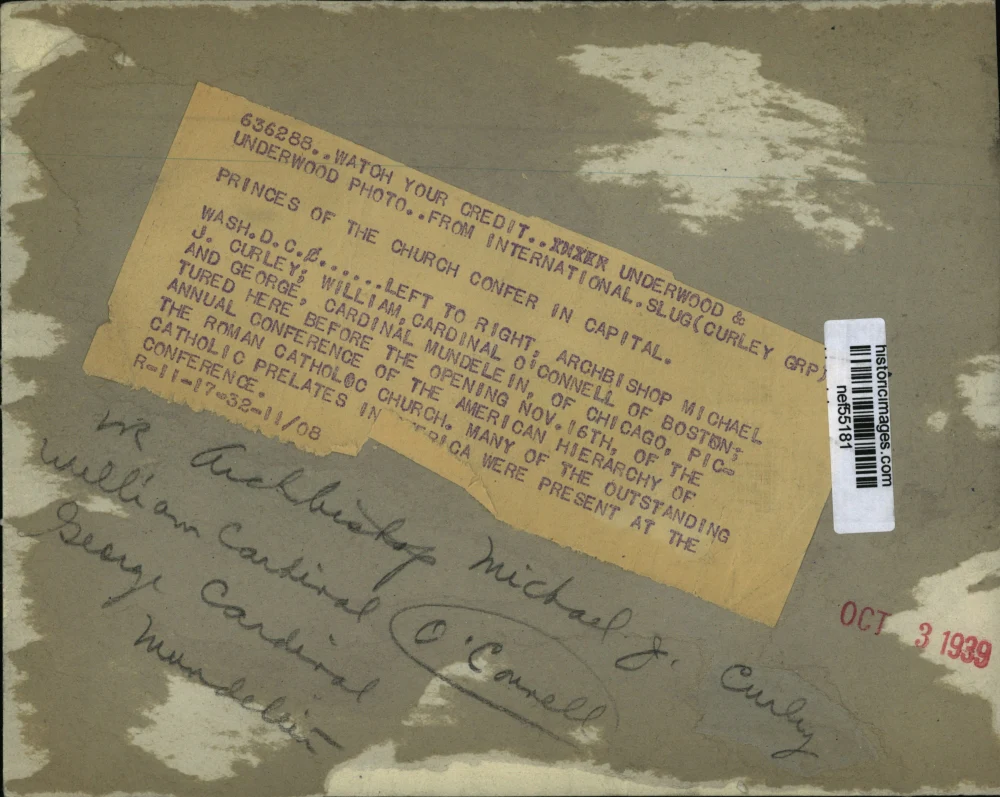 636288..WATCH YOUR CREDIT..XNXXX UNDERWOOD &
UNDERWOOD PHOTO..FROM INTERNATIONAL.SLUG(CURLEY GRP)
PRINCES OF THE CHURCH CONFER IN CAPITAL.
WASH.D.C.......LEFT TO RIGHT; ARCHBISHOP MICHAEL
J. CURLEY; WILLIAM, CARDINAL O'CONNELL OF BOSTON;
AND GEORGE, CARDINAL MUNDELEIN, OF CHICAGO, PIC-
TURED HERE BEFORE THE OPENING NOV.16TH, OF THE
ANNUAL CONFERENCE OF THE AMERICAN HIERARCHY OF
THE ROMAN CATHOLIC CHURCH. MANY OF THE OUTSTANDING
CATHOLIC PRELATES IN ERICA WERE PRESENT AT THE
CONFERENCE.
R-11-17-32-11/08
historicimages.com
nef55181
LR Archbishop Michael J. Curley
William Cardinal O'Connell
George Cardinal
Mundelein
OCT 3 1939